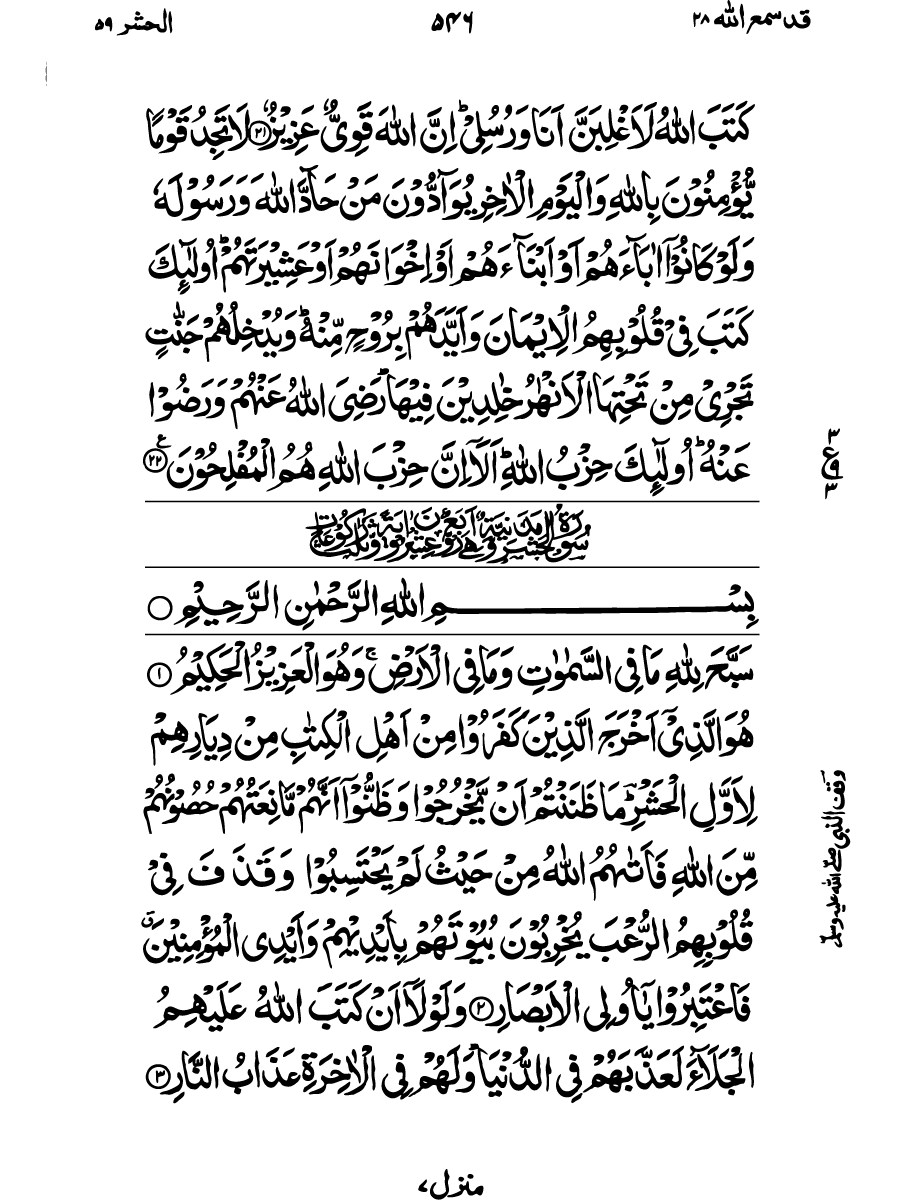 قد سمع الله ٢٨
٥٤٦
الحشر ٥٩
كَتَبَ اللهُ لَاَغْلِبَنَّ اَنَا وَرُسُلِيْ ؕ اِنَّ اللهَ قَوِيٌّ عَزِيْزٌ ﴿٢١﴾ لَا تَجِدُ قَوْمًا
يُّؤْمِنُوْنَ بِاللهِ وَالْيَوْمِ الْاٰخِرِ يُوَآدُّوْنَ مَنْ حَآدَّ اللهَ وَرَسُوْلَهٗ
وَلَوْ كَانُوْۤا اٰبَآءَهُمْ اَوْ اَبْنَآءَهُمْ اَوْ اِخْوَانَهُمْ اَوْ عَشِيْرَتَهُمْ ؕ اُولٰٓئِكَ
كَتَبَ فِيْ قُلُوْبِهِمُ الْاِيْمَانَ وَاَيَّدَهُمْ بِرُوْحٍ مِّنْهُ ؕ وَيُدْخِلُهُمْ جَنّٰتٍ
تَجْرِيْ مِنْ تَحْتِهَا الْاَنْهٰرُ خٰلِدِيْنَ فِيْهَا ؕ رَضِيَ اللهُ عَنْهُمْ وَرَضُوْا
عَنْهُ ؕ اُولٰٓئِكَ حِزْبُ اللهِ ؕ اَلَاۤ اِنَّ حِزْبَ اللهِ هُمُ الْمُفْلِحُوْنَ ﴿٢٢﴾ ع
٣
ع
٣
بِسْمِ اللهِ الرَّحْمٰنِ الرَّحِيْمِ ○
سَبَّحَ لِلّٰهِ مَا فِي السَّمٰوٰتِ وَمَا فِي الْاَرْضِ ۚ وَهُوَ الْعَزِيْزُ الْحَكِيْمُ ﴿١﴾
هُوَ الَّذِيْۤ اَخْرَجَ الَّذِيْنَ كَفَرُوْا مِنْ اَهْلِ الْكِتٰبِ مِنْ دِيَارِهِمْ
لِاَوَّلِ الْحَشْرِ ؔؕ مَا ظَنَنْتُمْ اَنْ يَّخْرُجُوْا وَظَنُّوْۤا اَنَّهُمْ مَّانِعَتُهُمْ حُصُوْنُهُمْ
مِّنَ اللهِ فَاَتٰىهُمُ اللهُ مِنْ حَيْثُ لَمْ يَحْتَسِبُوْا وَقَذَفَ فِيْ
قُلُوْبِهِمُ الرُّعْبَ يُخْرِبُوْنَ بُيُوْتَهُمْ بِاَيْدِيْهِمْ وَاَيْدِي الْمُؤْمِنِيْنَ ۗ
فَاعْتَبِرُوْا يٰۤاُولِي الْاَبْصَارِ ﴿٢﴾ وَلَوْلَاۤ اَنْ كَتَبَ اللهُ عَلَيْهِمُ
الْجَلَآءَ لَعَذَّبَهُمْ فِي الدُّنْيَا ؕ وَلَهُمْ فِي الْاٰخِرَةِ عَذَابُ النَّارِ ﴿٣﴾
وقف النبي صلى الله عليه وسلم
منزل ٧